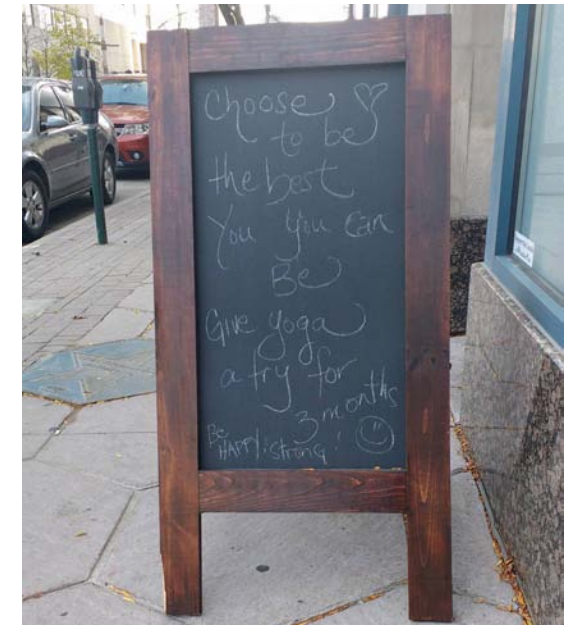 Choose
to be
the best
You You Can
Be
Give yoga
a try for
3 months
Be
HAPPY; strong!